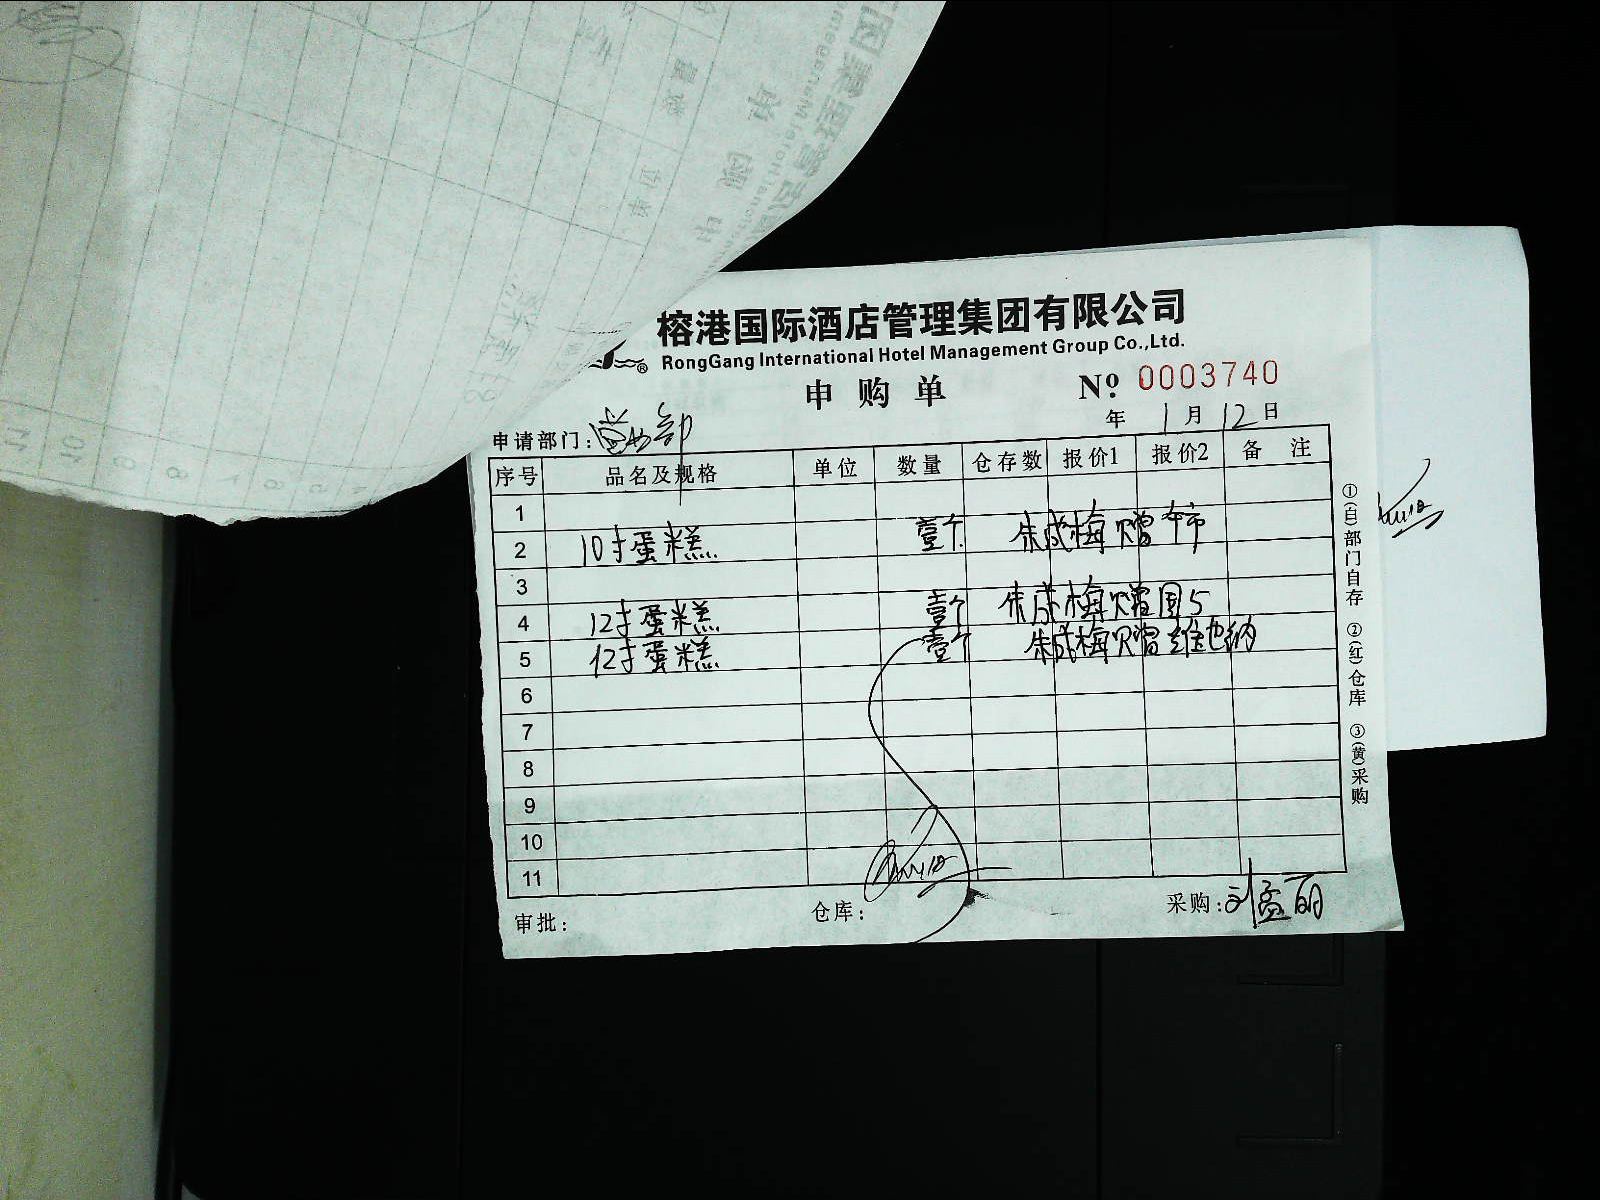 榕港国际酒店管理集团有限公司
RongGang International Hotel Management Group Co.,Ltd.
申购单 Nº 0003740
年 1 月 12 日
申请部门:
序号 品名及规格 单位 数量 仓存数 报价1 报价2 备 注
1
2 10寸蛋糕 壹个 朱成梅赠
3
4 12寸蛋糕 壹个 朱成梅赠国5
5 12寸蛋糕 壹个 朱成梅赠维也纳
6
7
8
9
10
11
审批: 仓库: 采购:刘孟丽
①(白)部门自存 ②(红)仓库 ③(黄)采购